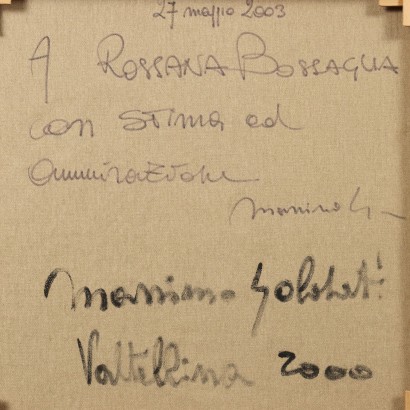 27 maggio 2003
A ROSSANA BOSSAGLIA
con stima ed
ammirazione
Massimo
Massimo
Valtellina 2000